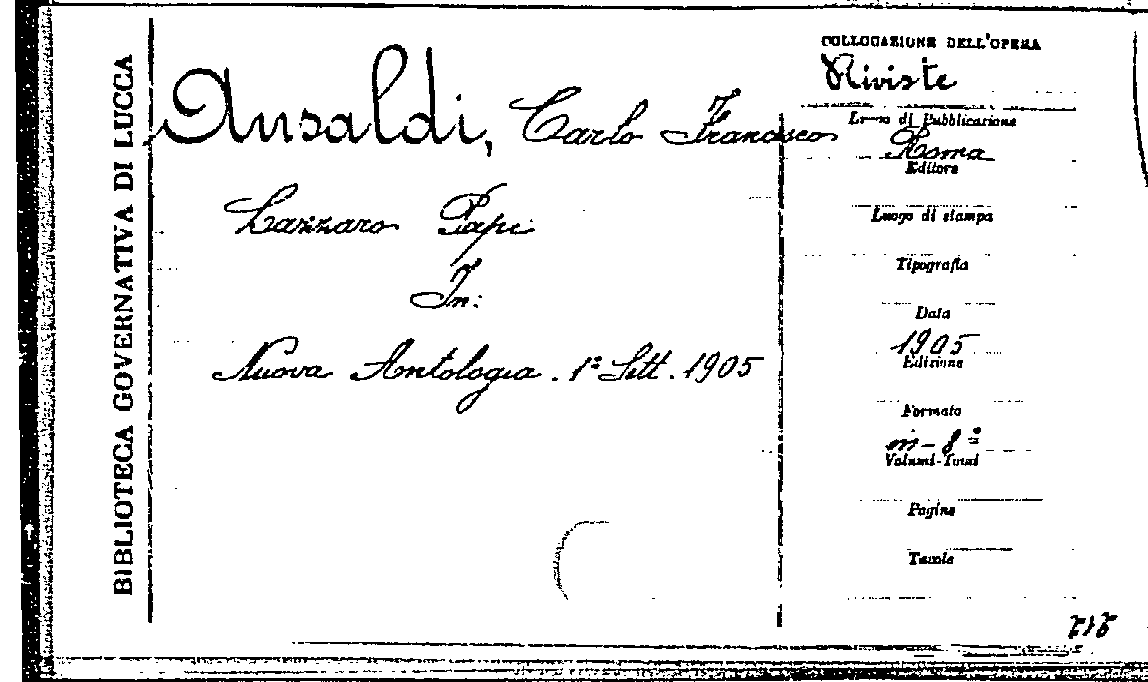 BIBLIOTECA GOVERNATIVA DI LUCCA
Ansaldi, Carlo Francesco
Lazzaro Papi
In:
Nuova Antologia. 1º Sett. 1905
COLLOCAZIONE DELL'OPERA
Riviste
Luogo di Pubblicazione
Roma
Editore
Luogo di stampa
Tipografia
Data
1905
Edizione
Formato
in-8º
Volumi-Tomi
Pagine
Tavole